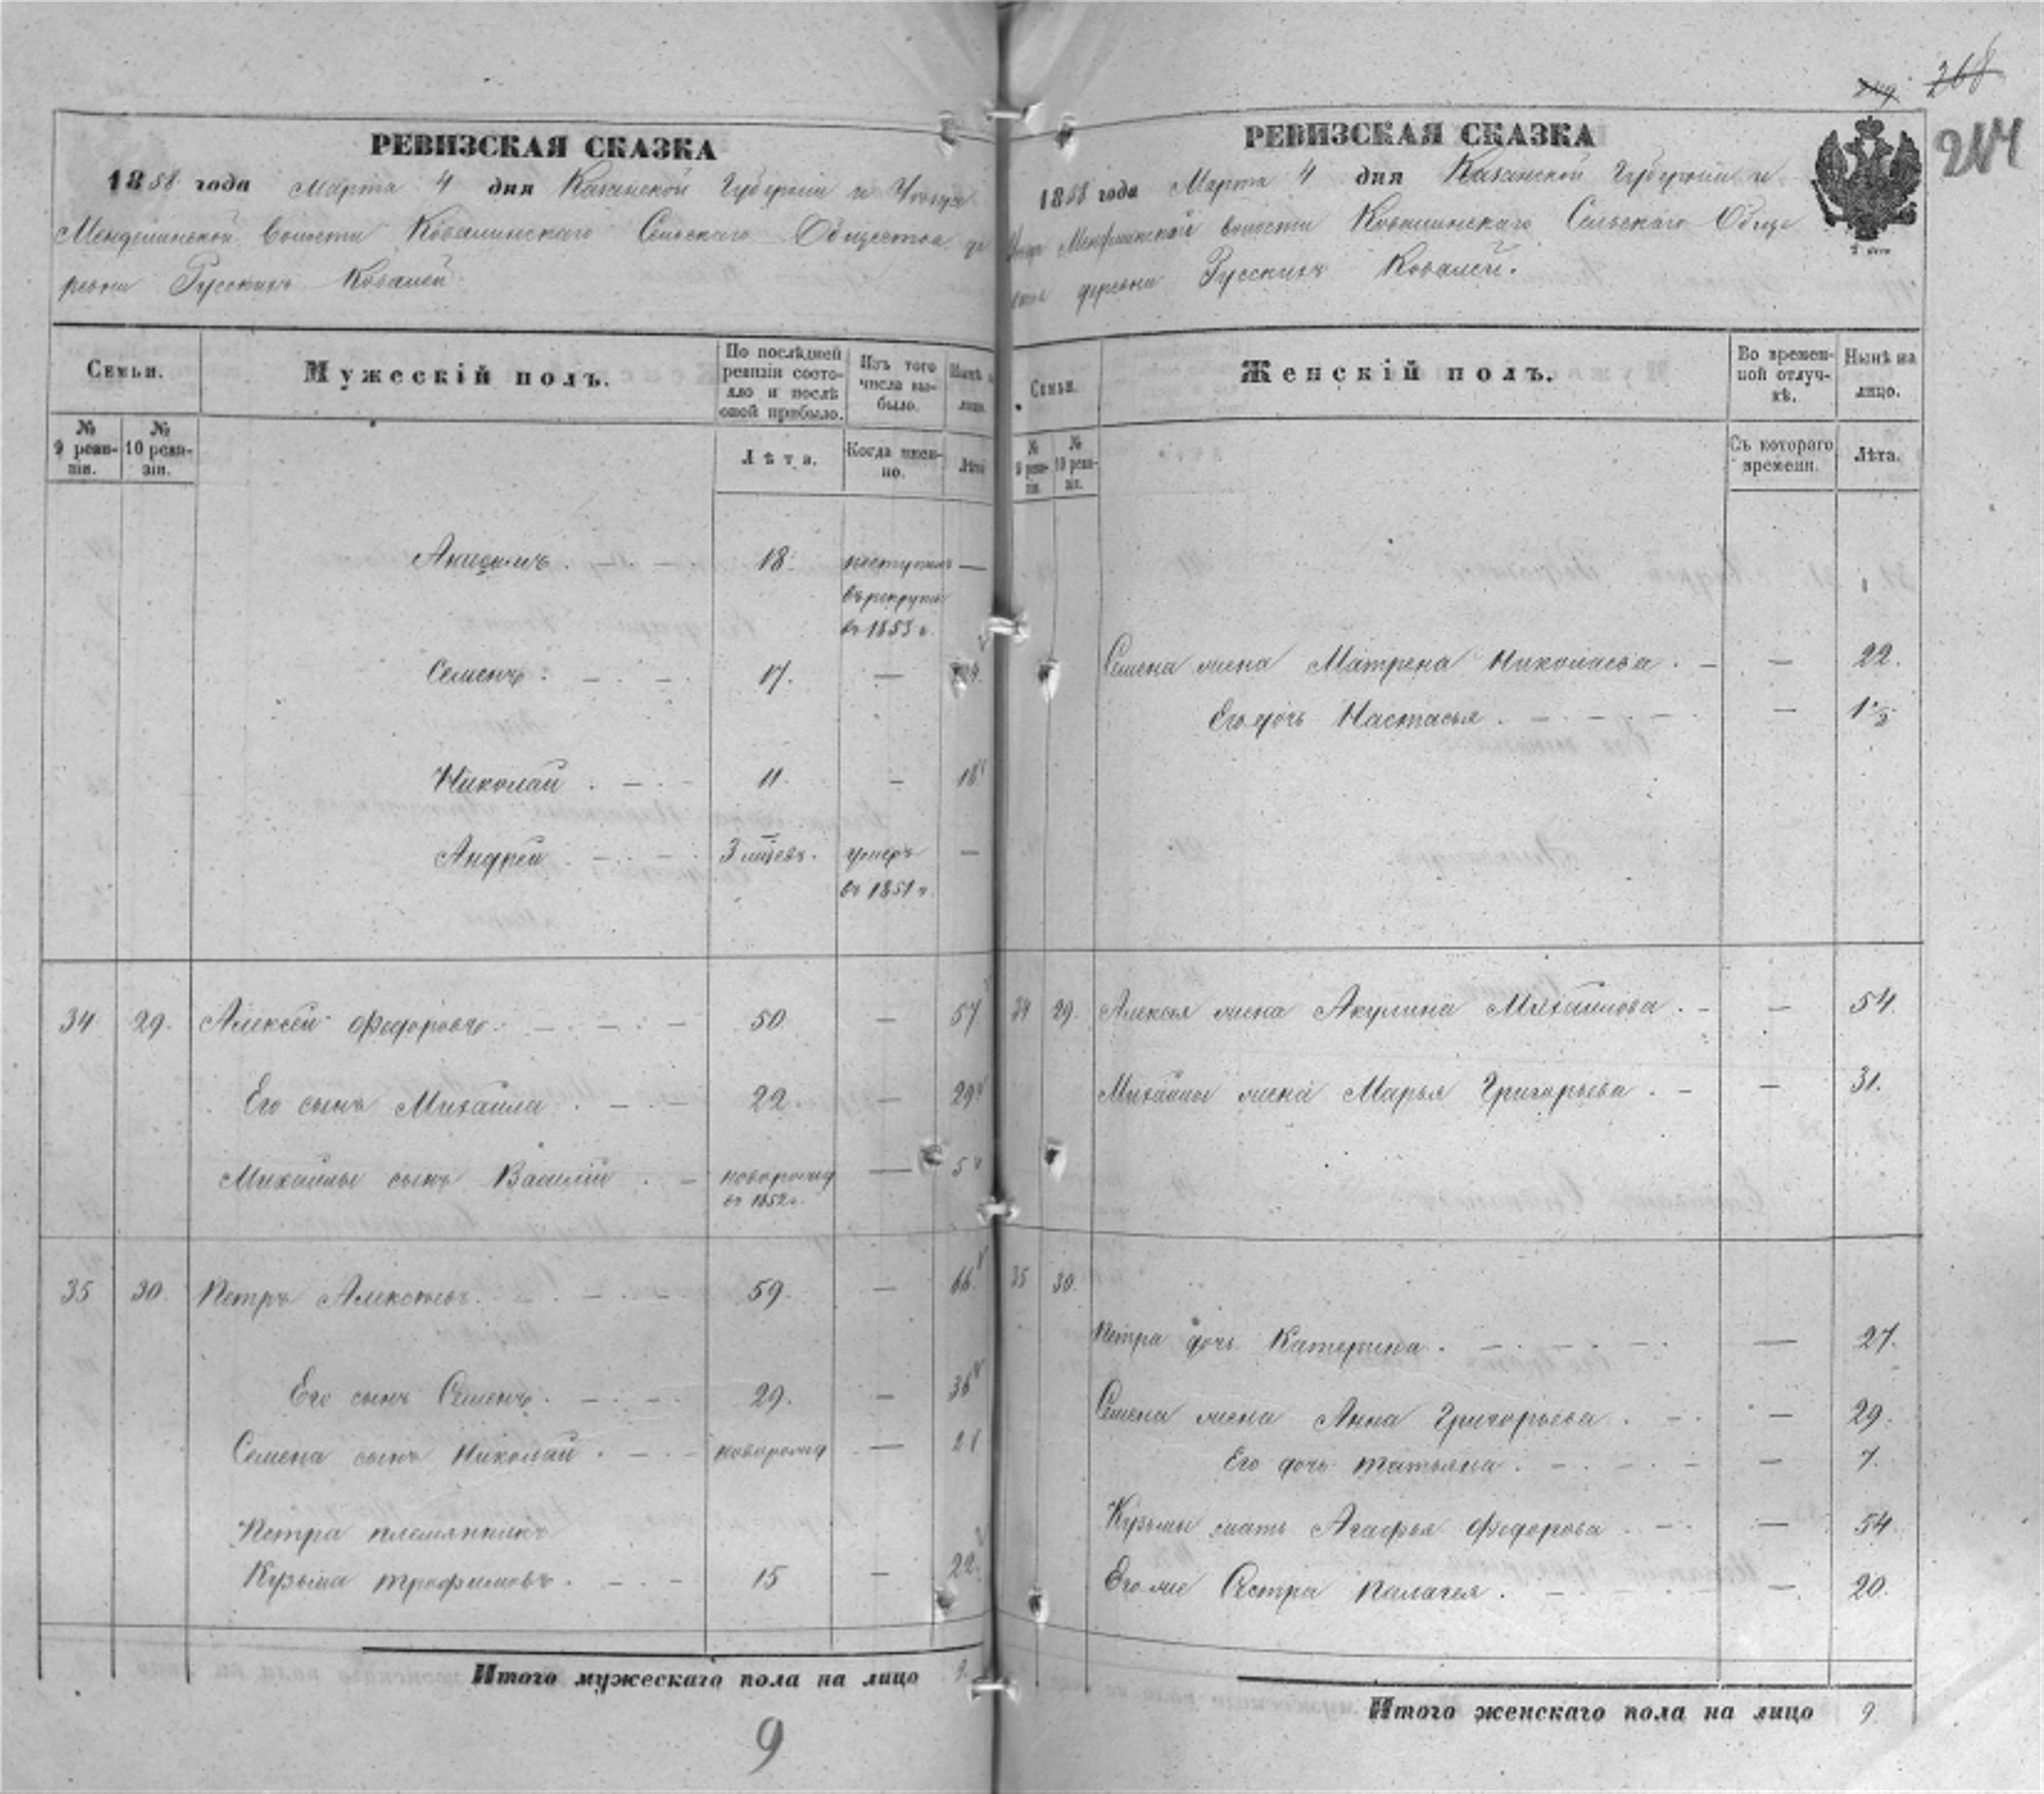 268
214
РЕВИЗСКАЯ СКАЗКА
1858 года Марта 4 дня Казанской Губернiи и Уѣзда
Менделинской волости Ковалинскаго Сельскаго Общества де
ревни Русскихъ Ковалей.
Семьи.
Мужескiй полъ.
По послѣдней
ревизiи состо-
яло и послѣ
оной прибыло.
Изъ того
числа вы-
было.
Нынѣ
лицо.
№
9 реви-
зiи.
№
10 реви-
зiи.
Лѣта.
Когда имен-
но.
Лѣта
Анисимъ . — . — . 18. поступилъ —
въ рекруты
въ 1853 г.
Семенъ . — . — . 17. — 24.
Николай . — . — 11. — 18
Андрей . — . — . 3 мѣсяв. умеръ —
въ 1851 г.
34 29. Алексѣй Федоровъ. — . — . — 50. — 57
Его сынъ Михаила . — . — 22. — 29
Михайлы сынъ Василiй . — новорожд — 5
въ 1852 г.
35 30. Петръ Алексѣевъ. — . — . — 59. — 66
Его сынъ Семенъ. — . — . 29. — 36
Семена сынъ Николай . — . — новорожд — 2
Петра племянникъ
Кузьма Трофимовъ. — . — 15 — 22.
Итого мужескаго пола на лицо 9.
9
РЕВИЗСКАЯ СКАЗКА
1858 года Марта 4 дня Казанской Губернiи и
Уѣзда Менделинской волости Ковалинскаго Сельскаго Обще
ства деревни Русскихъ Ковалей.
Семьи.
Женскiй полъ.
Во времен-
ной отлуч-
кѣ.
Нынѣ на
лицо.
№
9 реви-
зiи.
№
10 реви-
зiи.
Съ котораго
времени.
Лѣта.
Семена жена Матрена Николаева . — — 22.
Его дочь Настасья . — . — . — — 1 ½
34 29. Алексѣя жена Акулина Михайлова . — — 54.
Михайлы жена Марья Григорьева . — — 31.
35 30.
Петра дочь Катерина . — . — . — — 27.
Семена жена Анна Григорьева . — . — 29.
Его дочь Татьяна . — . — . — — 7.
Кузьмы мать Агафья Федорова . — . — 54.
Его же Сестра Палагея . — . — . — 20.
Итого женскаго пола на лицо 9.